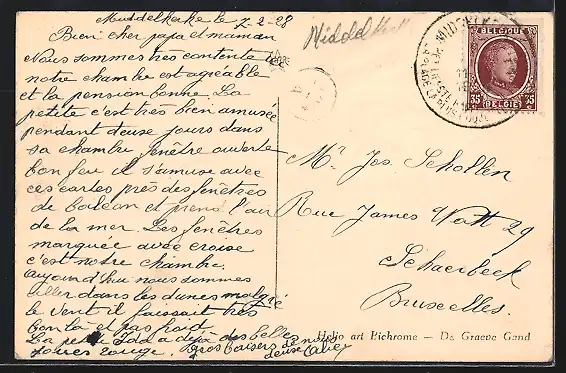 Middelkerke le 7-2-28
Bien cher papa et maman
Nous sommes très contente
notre chambre est agréable
et la pension bonne. La
petite c'est très bien amusée
pendant deuse jours dans
sa chambre fenêtre ouverte
bon feu il s'amuse avec
ces cartes près des fenêtres
de balcon et prend l'air
de la mer. Les fenêtres
marquée avec croise
c'est notre chambre.
Aujourd'hui nous sommes
aller dans les dunes malgré
le vent il faissait très
bon la et pas froid
La petite Idd a déjà des belles
joues rouge. Gros baisers de nous
deuse
Middelk
MIDDELKERKE
BELGIQUE
35 35
BELGIË
Mr. Jos. Schollen
Rue James Watt 29
Schaerbeek
Bruxelles.
Helio art Bichrome — De Graeve Gand